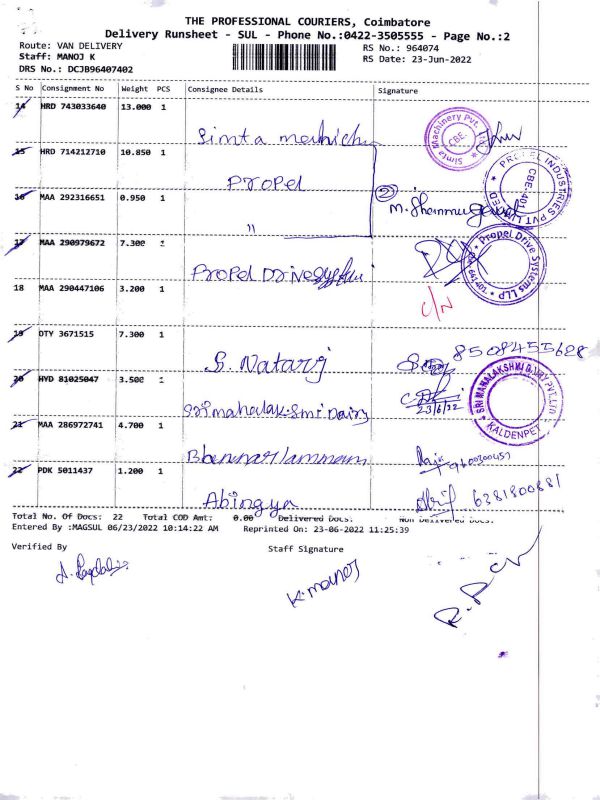 THE PROFESSIONAL COURIERS, Coimbatore
Delivery Runsheet - SUL - Phone No.:0422-3505555 - Page No.:2
Route: VAN DELIVERY RS No.: 964074
Staff: MANOJ K RS Date: 23-Jun-2022
DRS No.: DCJB96407402
S No Consignment No Weight PCS Consignee Details Signature
14 HRD 743033640 13.000 1
Simta Machinery Pvt. Ltd CBE
Simta
15 HRD 714212710 10.850 1
PROPEL INDUSTRIES PVT LIMITED CBE-401
Propel
16 MAA 292316651 0.950 1
2
"
17 MAA 290979672 7.300 1
Propel Drive Systems LLP
Propel Drive System
18 MAA 290447106 3.200 1
C/N
19 DTY 3671515 7.300 1
S. Nataraj 8508455628
20 HYD 81025047 3.500 1
SRI MAHALAKSHMI DAIRY PVT.LTD KALDENPET
Sri mahalakSmi Dairy 23/6/22
21 MAA 286972741 4.700 1
22 PDK 5011437 1.200 1
Abingya 6381800881
Total No. Of Docs: 22 Total COD Amt: 0.00 Delivered Docs: Non Delivered Docs:
Entered By :MAGSUL 06/23/2022 10:14:22 AM Reprinted On: 23-06-2022 11:25:39
Verified By Staff Signature
K. manoj